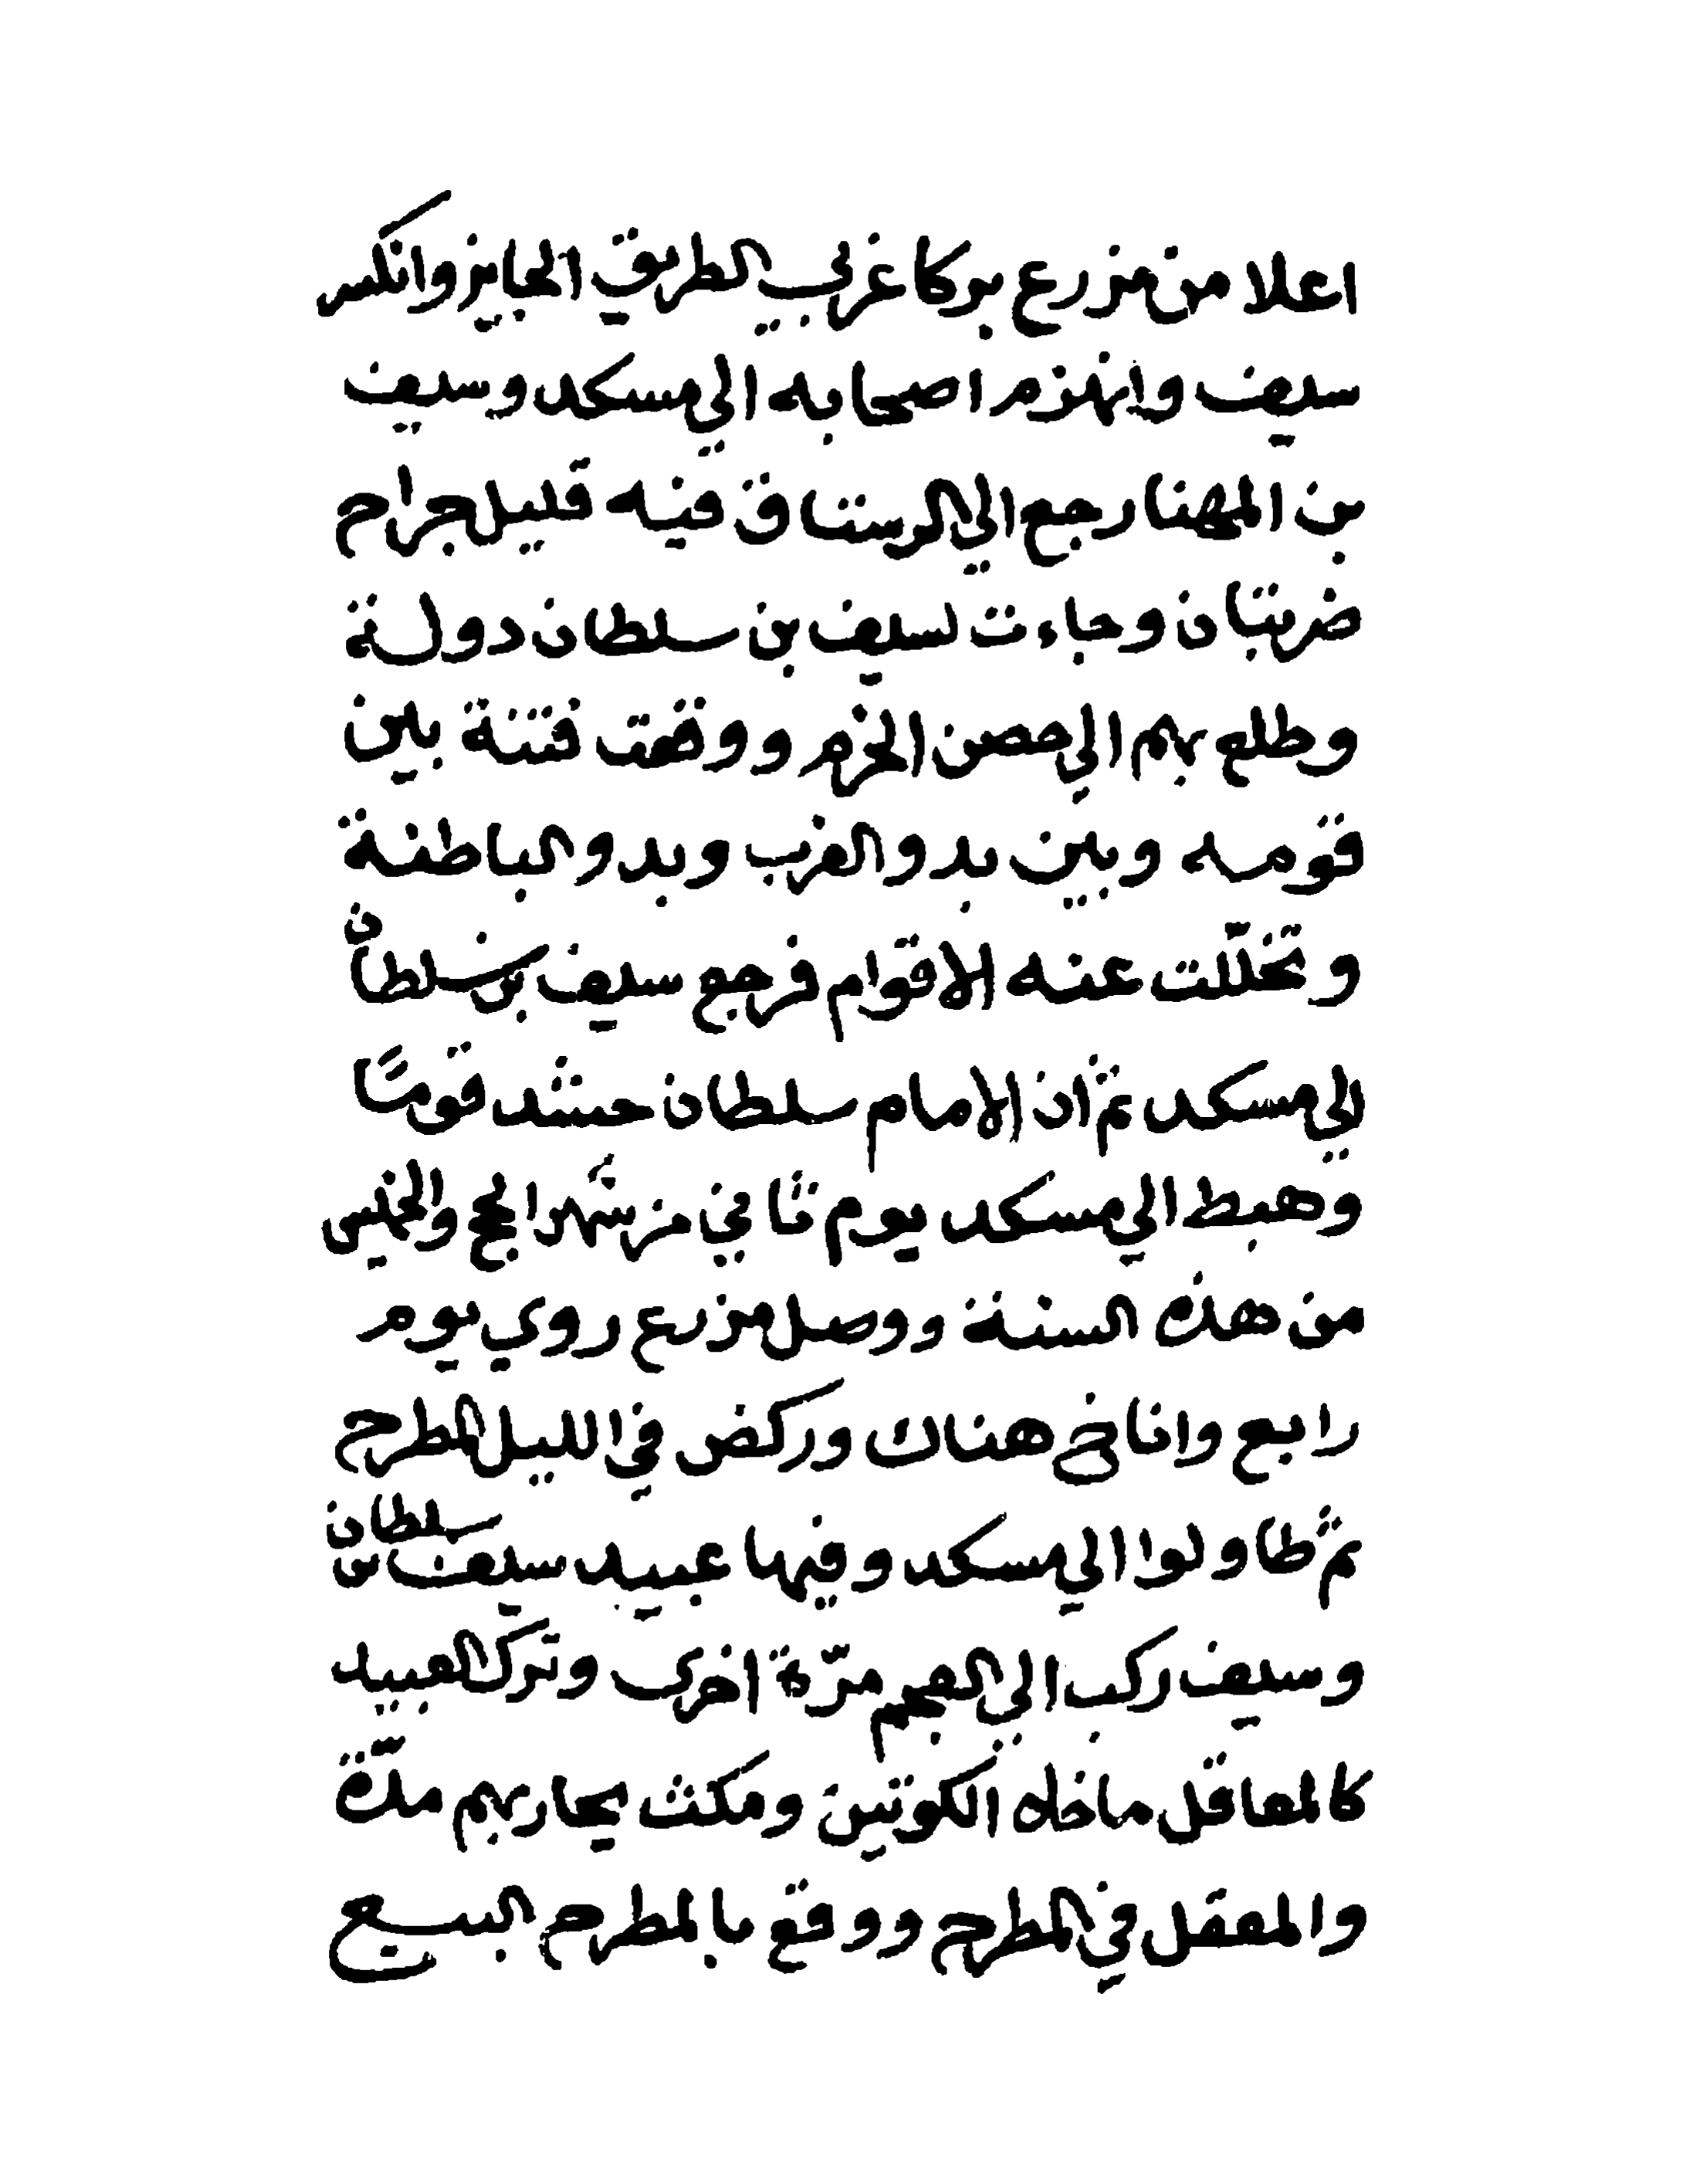 اعلا من مزرع بركا غربي الطريق الجايز وانكسر
سيف وانهزم اصحابه الي مسكد وسيف
بن المهنا رجع الي الرستاق فيه قليل جراح
ضربتان وجاءت لسيف بن سلطان دولة
وطلع بهم الي حصن الحزم ووقعت فتنة بين
قومه وبين بدو الغرب وبدو الباطنة
وتخلّت عنه الاقوام فرجع سيف بن سلطان
الي مسكد ثم أن الامام سلطان حشد قومًا
وهبط الي مسكد يوم ثاني من شهر الحج والخميس
من هذه السنة ووصل مزرع روي يوم
رابع واناخ هناك وركض في الليل المطرح
ثم طاولوا الي مسكد وفيها عبيد سيف بن سلطان
وسيف ركب الي العجم مرّة اخرى وترك العبيد
كالمعاقل ماخلا الكوتين ومكث يحاربهم مدّة
والمعقل في المطرح ووقع بالمطرح البيع